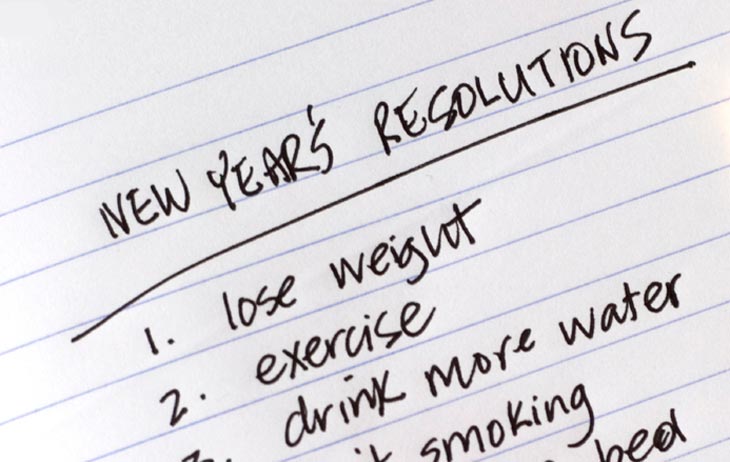 NEW YEAR'S RESOLUTIONS
1. lose weight
2. exercise
3. drink more water
smoking
bed